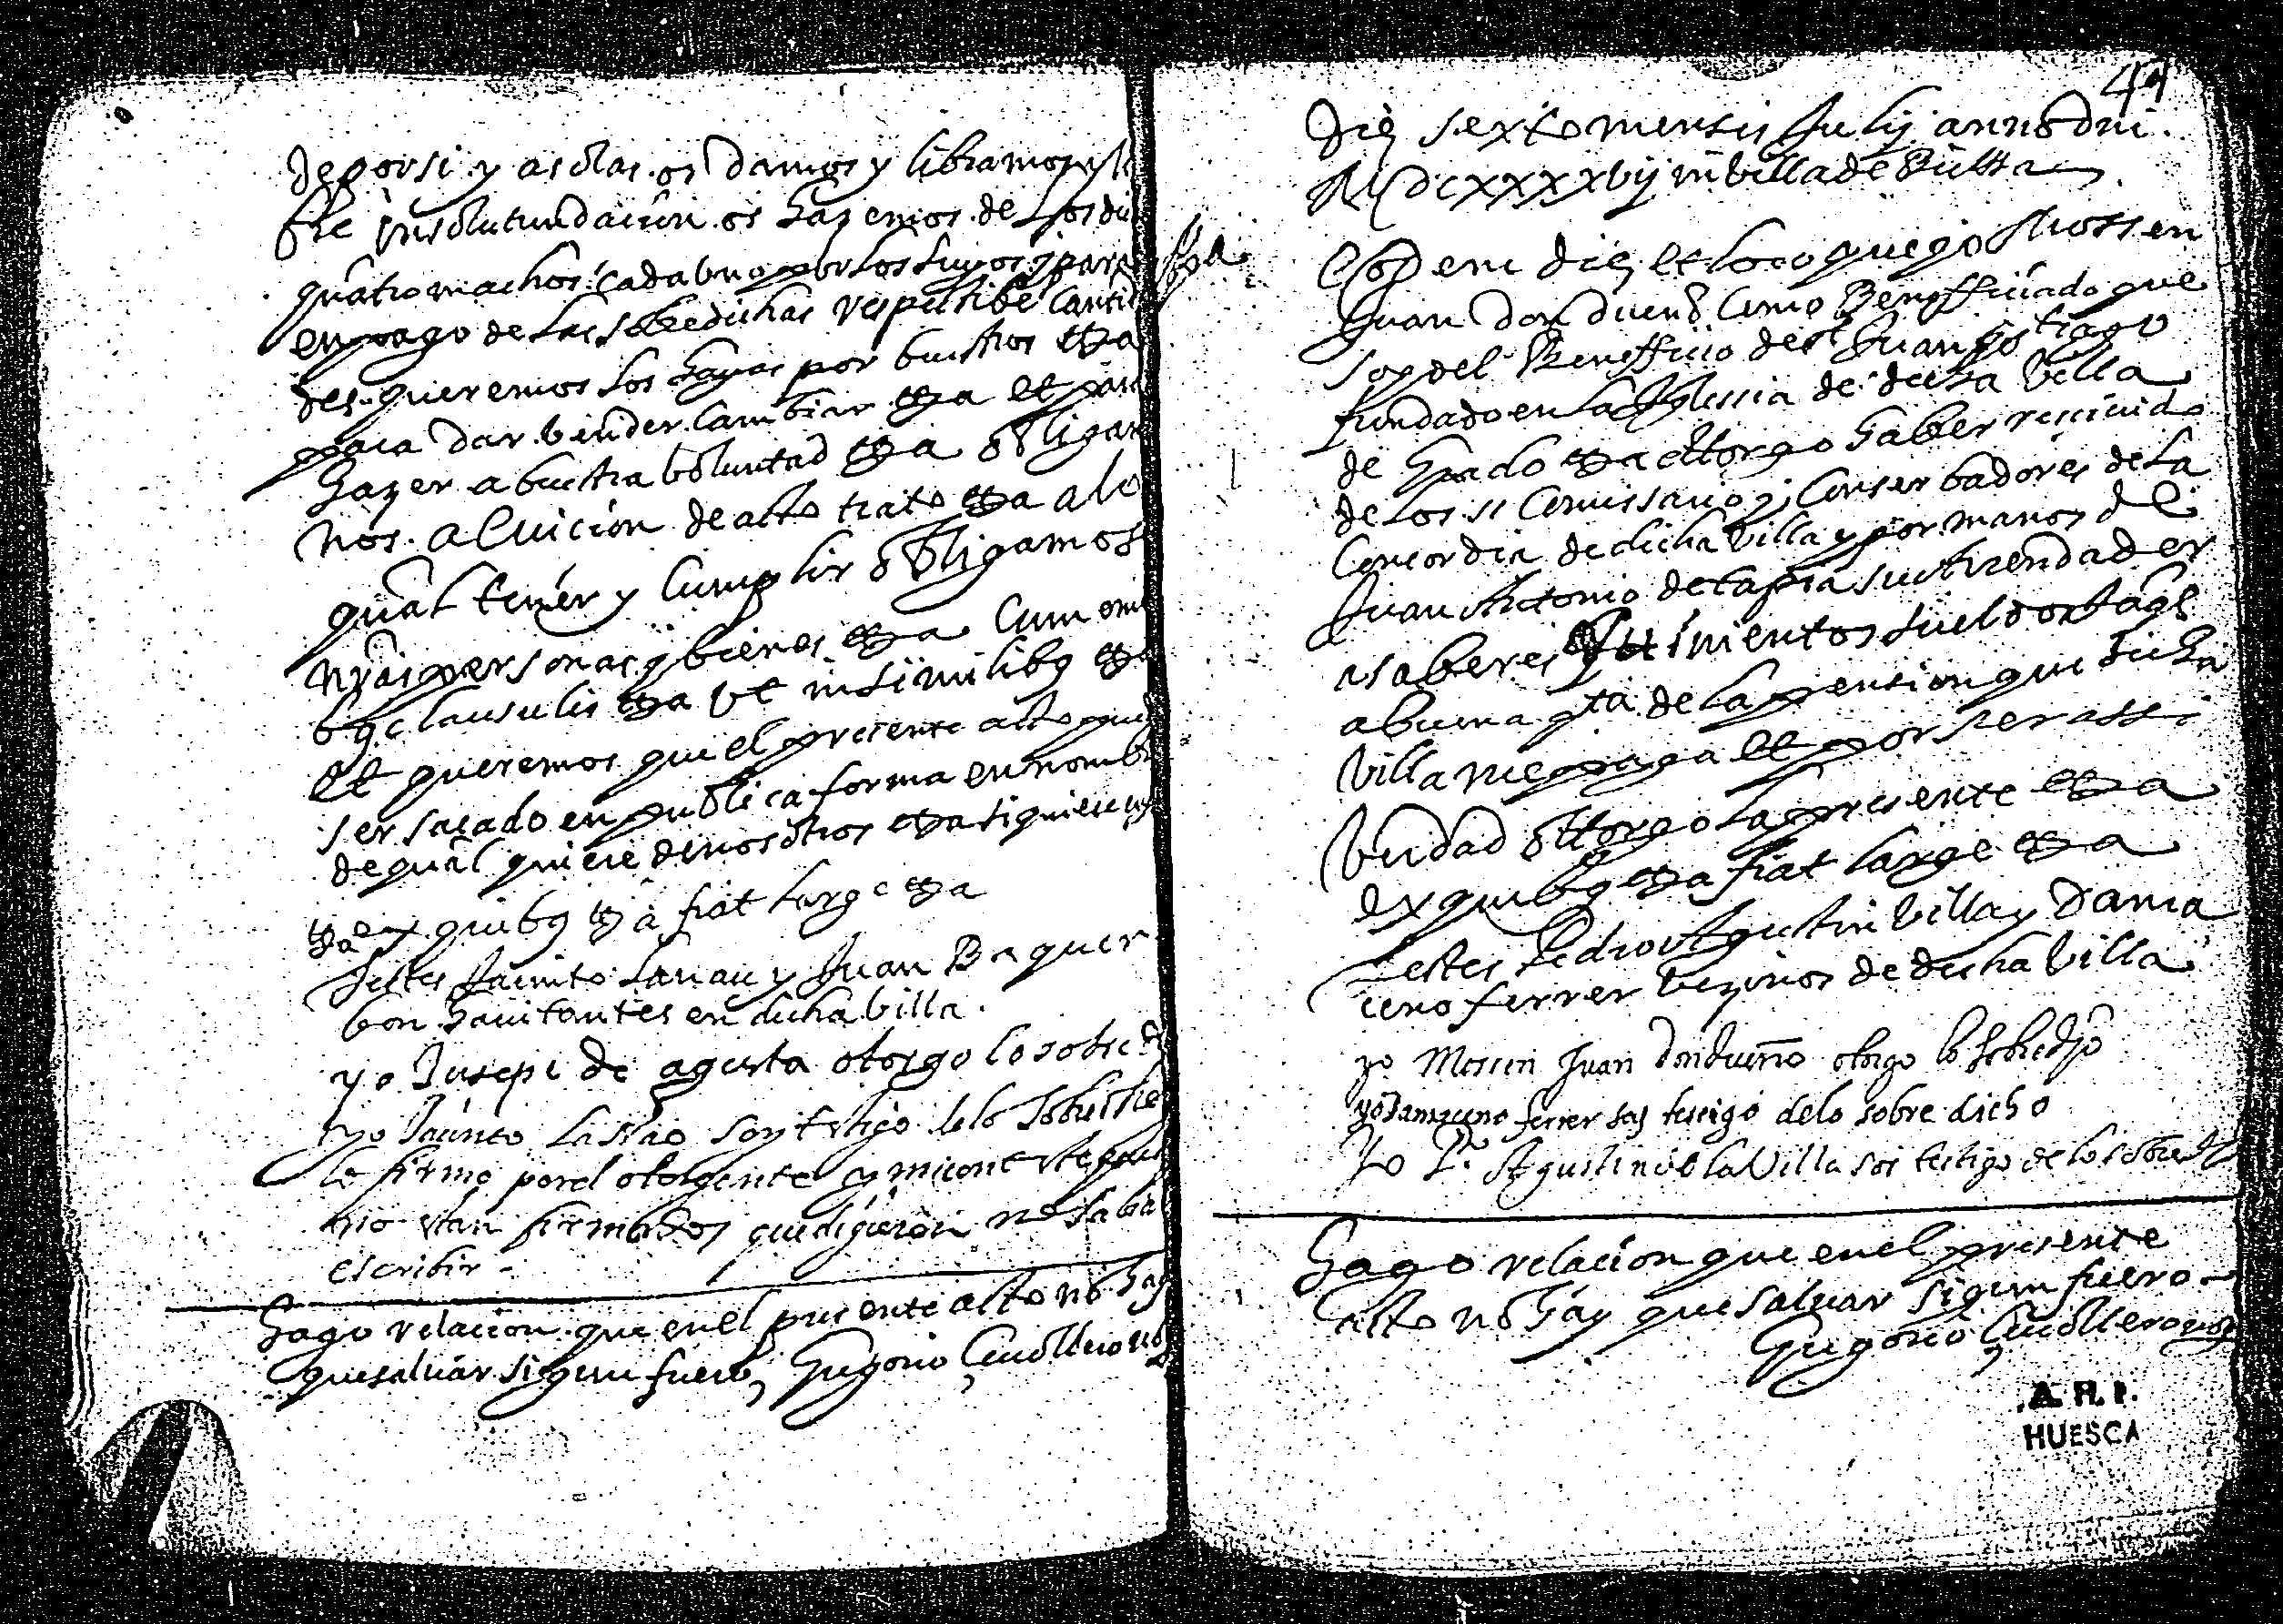 de por si y a solas os damos y libramos y
insolutundacion os hazemos de los di
quatro machos cada uno por los suyos y para
en pago de las sobredichas respectibe canti
des queremos los hayas por buestros etta
para dar bender cambiar etta et para
hazer a buestra boluntad etta obligam
nos a luicion de acto trato etta a lo
qual tener y cumplir obligamos
nras personas y bienes etta cum omi
bq clausulis etta ut in similibq etta
et queremos que el presente acto pued
ser sacado en publica forma en nombr
de qual quiere de nosotros etta si quiere
etta ex quibq etta fiat large etta
testes Jacinto Lanau y Juan Baquer
bon hauitantes en dicha villa.
yo Jusepe de agusta otorgo lo sobred
yo Jacinto Lanao soy testigo de lo sobredho
le firmo por el otorgente y mi conteste
no stan firmados que digeron no sabia
escribir
Hago relacion que en el presente acto no hay
que saluar sigun fuero, Gregorio not
49
Die sexto mensis Julij anno dni
MDCXXXXVIJ in villa de
Eodem die et loco que yo Mossen
Juan don dueño como Benefficiado que
soy del Benefficio de St Juan y S tiago
fundado en la Iglessia de dicha Villa
de Grado etta ottorgo haber reciuido
de los ss Comissario y Conserbadores de la
Concordia de dicha villa y por manos de
Juan Antonio de tapia su arrendador
a saber es Quinientos sueldos Jaqs
a buena qta de la pension que dicha
villa me paga et por ser assi
berdad ottorgo la presente etta
ex quibq etta fiat large etta
testes Pedro Agustin villa y Dama
ceno ferrer bezinos de dicha villa
yo Mossen Juan Donduenno otorgo lo sobredho
yo Damaceno ferrer soy testigo de lo sobre dicho
Yo Po Agustin de la Villa soi testigo de lo sobredho
Hago relacion que en el presente
acto no hay que saluar sigun fuero
Gregorio not
A. H. P.
HUESCA